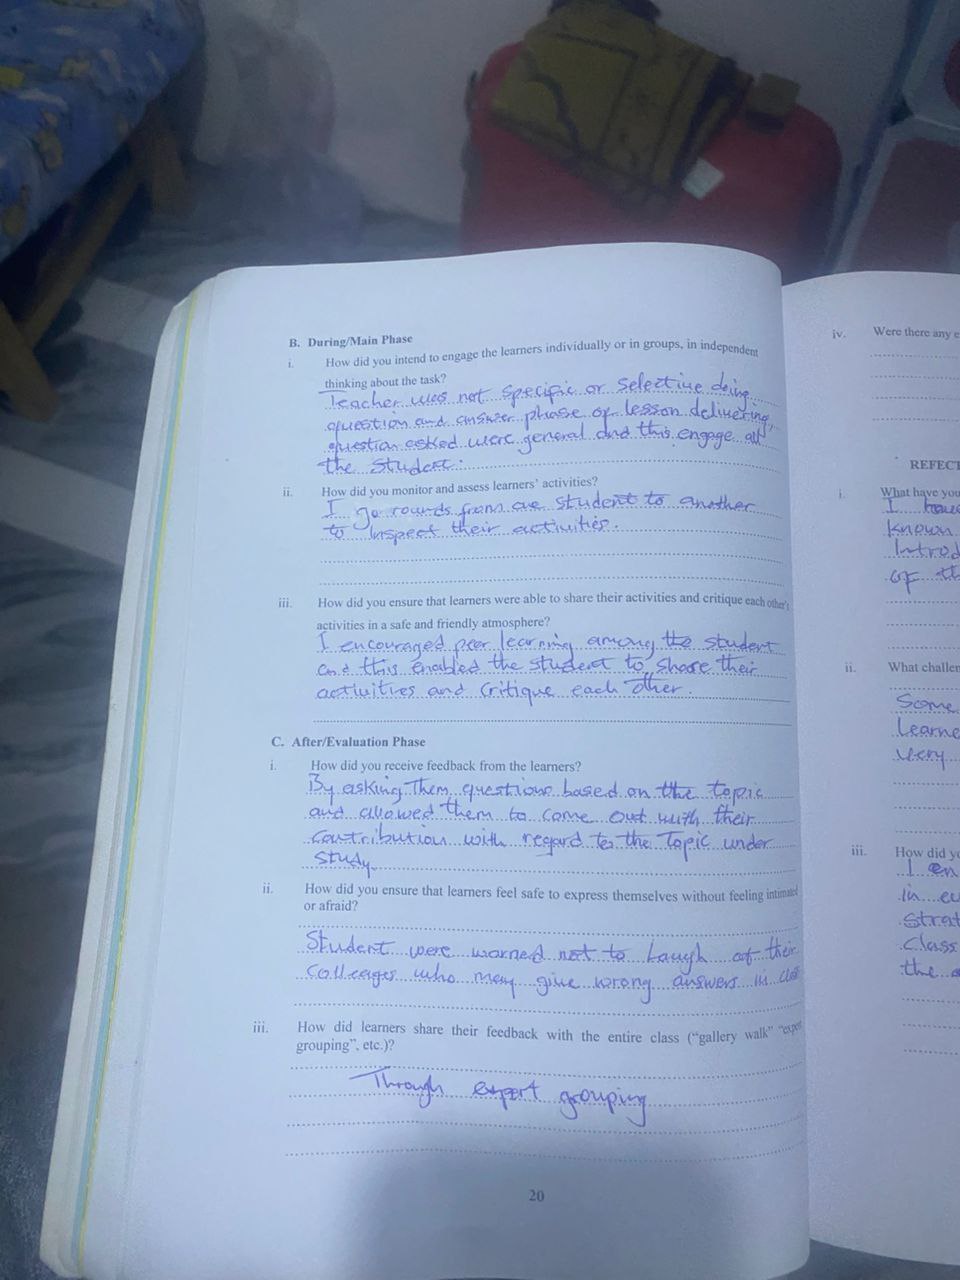 B. During/Main Phase
i. How did you intend to engage the learners individually or in groups, in independent
thinking about the task?
Teacher was not specific or selective doing
question and answer phase of lesson delivering,
question asked were general and this engage all
the student.
ii. How did you monitor and assess learners' activities?
I go rounds from one student to another
to inspect their activities.
iii. How did you ensure that learners were able to share their activities and critique each other's
activities in a safe and friendly atmosphere?
I encouraged peer learning among the student
and this enabled the student to share their
activities and critique each other.
C. After/Evaluation Phase
i. How did you receive feedback from the learners?
By asking them questions based on the topic
and allowed them to come out with their
contribution with regard to the topic under
study.
ii. How did you ensure that learners feel safe to express themselves without feeling intimated
or afraid?
Student were warned not to laugh at their
colleages who may give wrong answers in class
iii. How did learners share their feedback with the entire class ("gallery walk" "expert
grouping", etc.)?
Through expert grouping
20
iv. Were there any e
REFECT
i. What have you
I have
known
Introd
of th
ii. What challen
Some
Learne
very
iii. How did yo
I en
in
strat
class
the